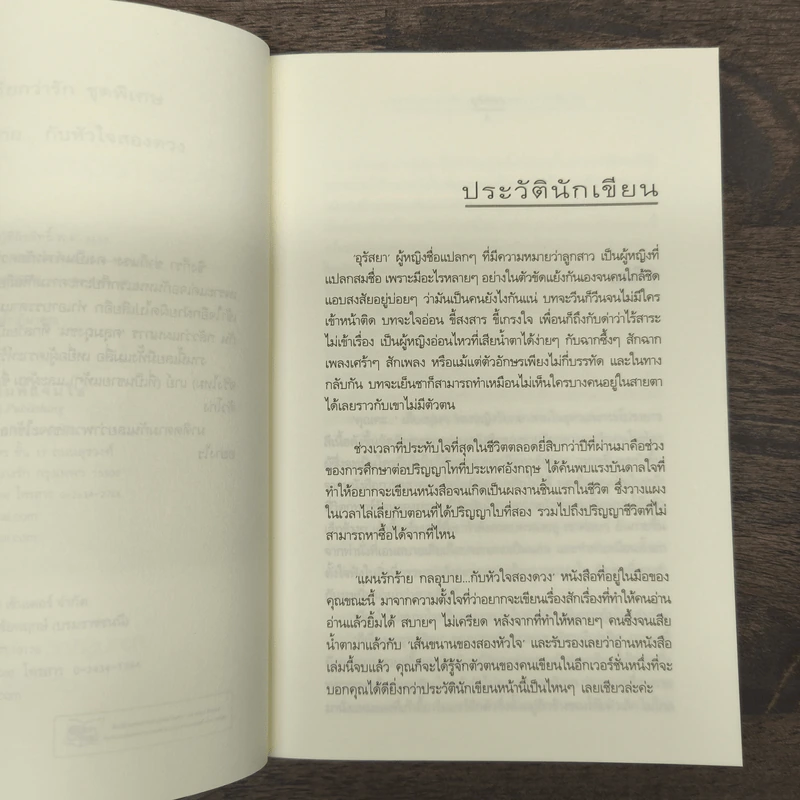 ประวัตินักเขียน
'อุรัสยา' ผู้หญิงชื่อแปลกๆ ที่มีความหมายว่าลูกสาว เป็นผู้หญิงที่
แปลกสมชื่อ เพราะมีอะไรหลายๆ อย่างในตัวขัดแย้งกันเองจนคนใกล้ชิด
แอบสงสัยอยู่บ่อยๆ ว่ามันเป็นคนยังไงกันแน่ บทจะวีนก็วีนจนไม่มีใคร
เข้าหน้าติด บทจะใจอ่อน ขี้สงสาร ขี้เกรงใจ เพื่อนก็ถึงกับด่าว่าไร้สาระ
ไม่เข้าเรื่อง เป็นผู้หญิงอ่อนไหวที่เสียน้ำตาได้ง่ายๆ กับฉากซึ้งๆ สักฉาก
เพลงเศร้าๆ สักเพลง หรือแม้แต่ตัวอักษรเพียงไม่กี่บรรทัด และในทาง
กลับกัน บทจะเย็นชาก็สามารถทำเหมือนไม่เห็นใครบางคนอยู่ในสายตา
ได้เลยราวกับเขาไม่มีตัวตน
ช่วงเวลาที่ประทับใจที่สุดในชีวิตตลอดยี่สิบกว่าปีที่ผ่านมาคือช่วง
ของการศึกษาต่อปริญญาโทที่ประเทศอังกฤษ ได้ค้นพบแรงบันดาลใจที่
ทำให้อยากจะเขียนหนังสือจนเกิดเป็นผลงานชิ้นแรกในชีวิต ซึ่งวางแผง
ในเวลาไล่เลี่ยกับตอนที่ได้ปริญญาใบที่สอง รวมไปถึงปริญญาชีวิตที่ไม่
สามารถหาซื้อได้จากที่ไหน
'แผนรักร้าย กลอุบาย...กับหัวใจสองดวง' หนังสือที่อยู่ในมือของ
คุณขณะนี้ มาจากความตั้งใจที่ว่าอยากจะเขียนเรื่องสักเรื่องที่ทำให้คนอ่าน
อ่านแล้วยิ้มได้ สบายๆ ไม่เครียด หลังจากที่ทำให้หลายๆ คนซึ้งจนเสีย
น้ำตามาแล้วกับ 'เส้นขนานของสองหัวใจ' และรับรองเลยว่าอ่านหนังสือ
เล่มนี้จบแล้ว คุณก็จะได้รู้จักตัวตนของคนเขียนในอีกเวอร์ชั่นหนึ่งที่จะ
บอกคุณได้ดียิ่งกว่าประวัตินักเขียนหน้านี้เป็นไหนๆ เลยเชียวล่ะค่ะ